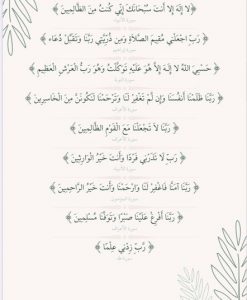 ﴿ لَا إِلَهَ إِلَّا أَنتَ سُبْحَانَكَ إِنِّي كُنتُ مِنَ الظَّالِمِينَ ﴾
سورة الأنبياء
﴿ رَبِّ اجْعَلْنِي مُقِيمَ الصَّلَاةِ وَمِن ذُرِّيَّتِي رَبَّنَا وَتَقَبَّلْ دُعَاءِ ﴾
سورة إبراهيم
﴿ حَسْبِيَ اللَّهُ لَا إِلَهَ إِلَّا هُوَ عَلَيْهِ تَوَكَّلْتُ وَهُوَ رَبُّ الْعَرْشِ الْعَظِيمِ ﴾
سورة التوبة
﴿ رَبَّنَا ظَلَمْنَا أَنفُسَنَا وَإِن لَّمْ تَغْفِرْ لَنَا وَتَرْحَمْنَا لَنَكُونَنَّ مِنَ الْخَاسِرِينَ ﴾
سورة الأعراف
﴿ رَبَّنَا لَا تَجْعَلْنَا مَعَ الْقَوْمِ الظَّالِمِينَ ﴾
سورة الأعراف
﴿ رَبِّ لَا تَذَرْنِي فَرْدًا وَأَنتَ خَيْرُ الْوَارِثِينَ ﴾
سورة الأنبياء
﴿ رَبَّنَا آمَنَّا فَاغْفِرْ لَنَا وَارْحَمْنَا وَأَنتَ خَيْرُ الرَّاحِمِينَ ﴾
سورة المؤمنون
﴿ رَبَّنَا أَفْرِغْ عَلَيْنَا صَبْرًا وَتَوَفَّنَا مُسْلِمِينَ ﴾
سورة الأعراف
﴿ رَّبِّ زِدْنِي عِلْمًا ﴾
سورة طه